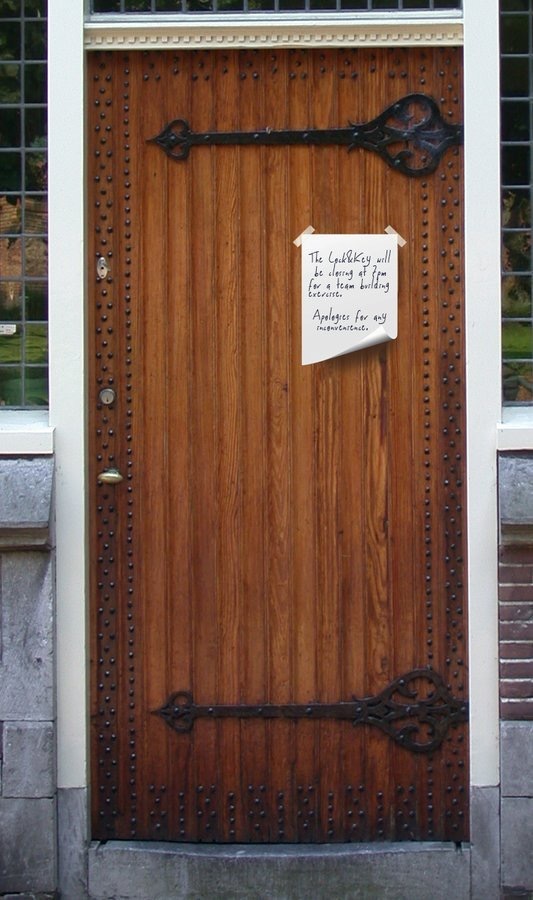 The Lock&Key will
be closing at 2pm
for a team building
exercise.
Apologies for any
inconvenience.